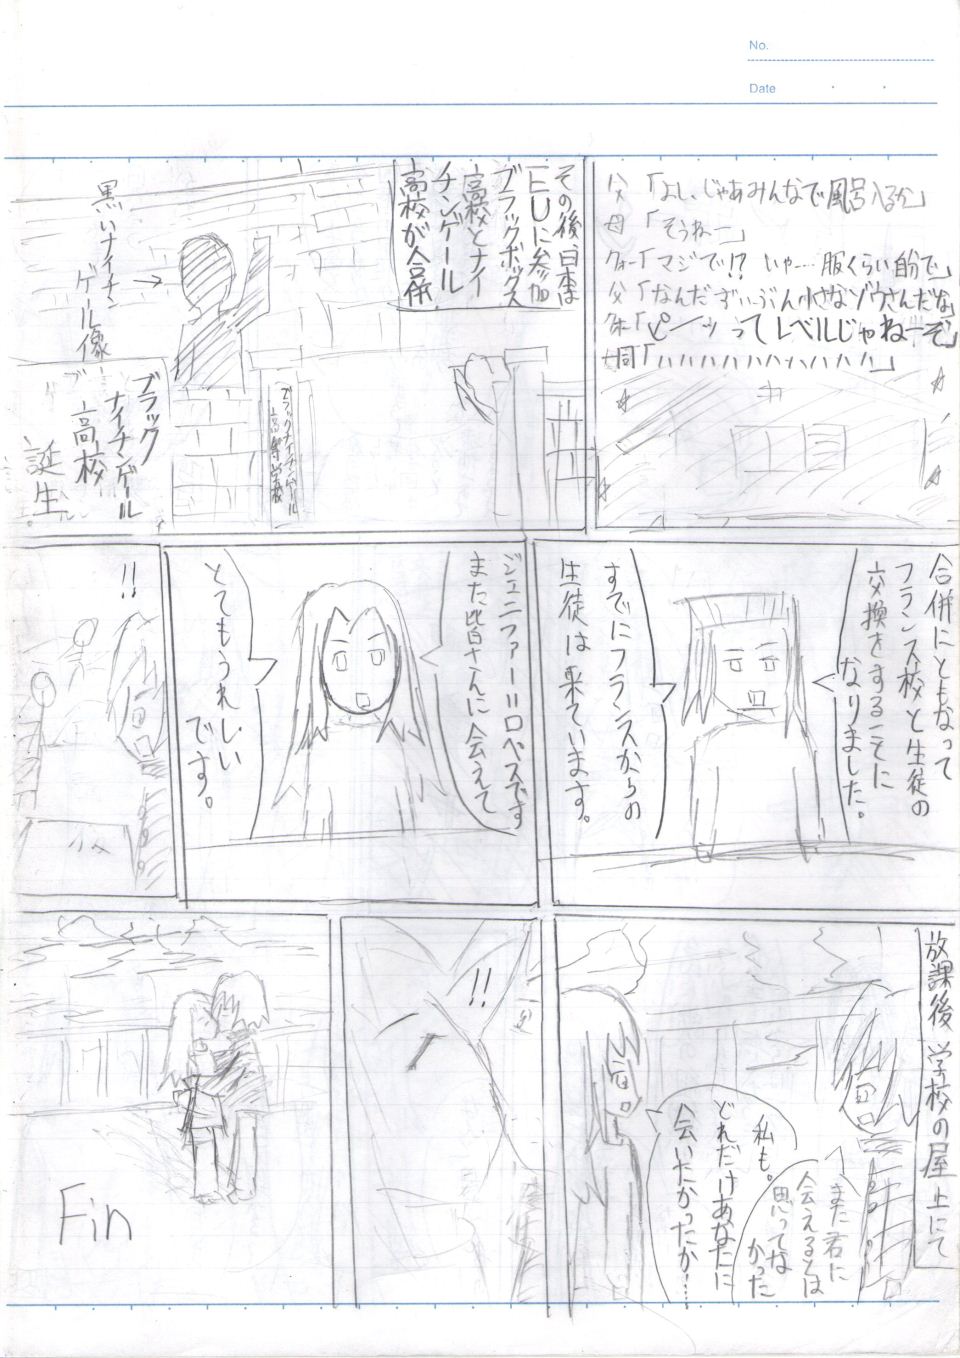 No.
Date
父「よし、じゃあみんなで風呂入るか」
母「そうねー」
「マジで!? いやー…服くらい自分で」
父「なんだずいぶん小さなゾウさんだな」
「ピーッってレベルじゃねーぞ」
一同「ハハハハハハハハハハ」
その後、日本は
EUに参加
ブラックボックス
高校とナイ
チンゲール
高校が合併
黒いナイチン
ゲール像
ブラックナイチンゲール
高等学校
ブラック
ナイチンゲール
高校
誕生。
合併にともなって
フランス校と生徒の
交換をすることに
なりました。
すでにフランスからの
生徒は来ています。
ジェニファー=ロペスです
また皆さんに会えて
とてもうれしい
です。
!!
放課後 学校の屋上にて
また君に
会えるとは
思ってな
かった
私も。
どれだけあなたに
会いたかったか…
!!
Fin